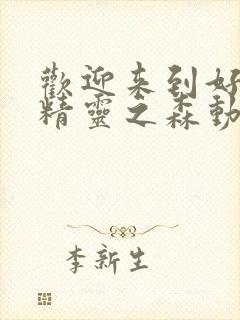 歡迎来到好
精靈之森動
李新生